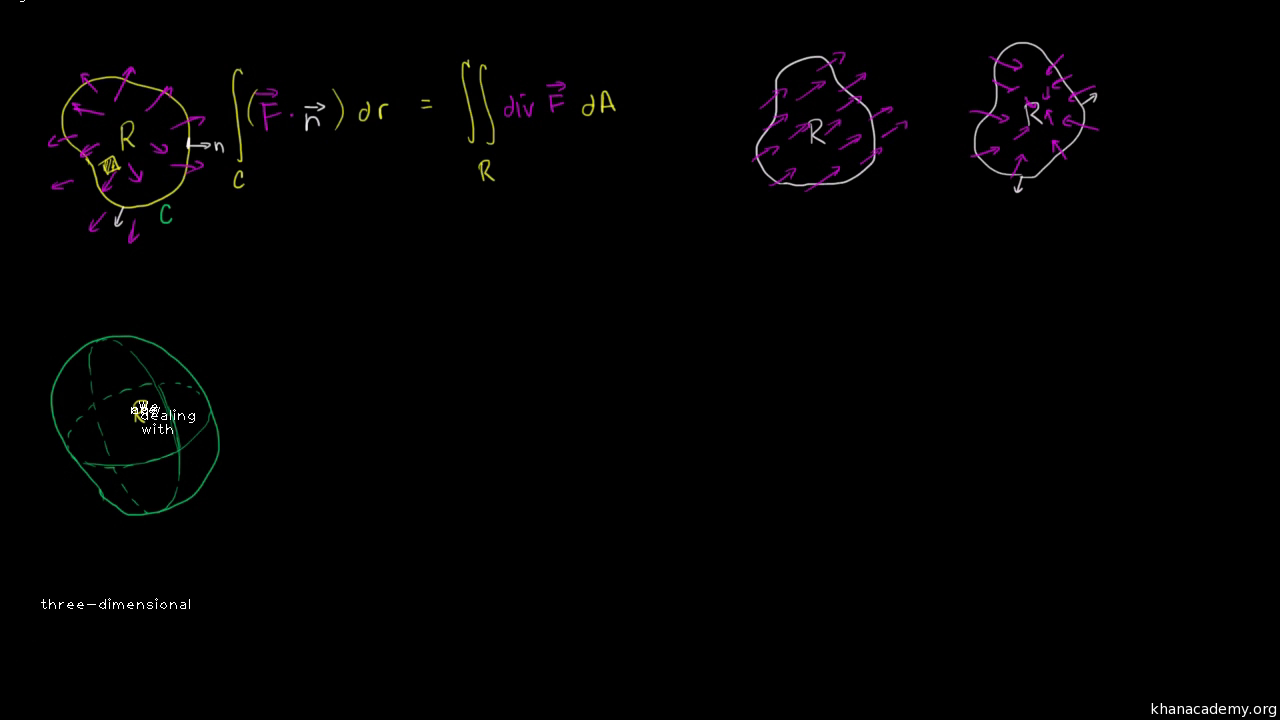 R
n
C
∫_C (F⃗ · n⃗) dr = ∬_R div F⃗ dA
R
R
R
dealing
with
three-dimensional
khanacademy.org